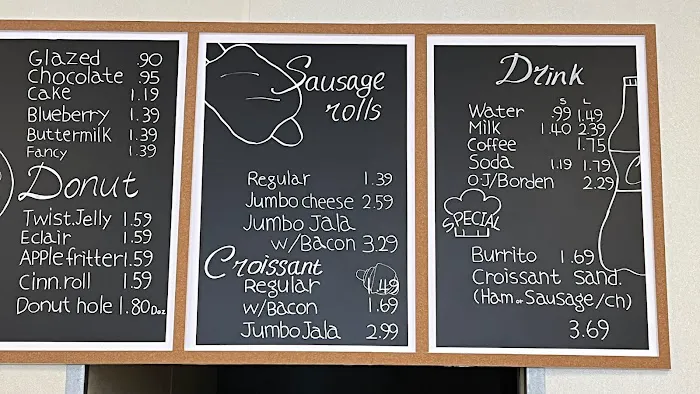 Glazed .90
Chocolate .95
Cake 1.19
Blueberry 1.39
Buttermilk 1.39
Fancy 1.39
Donut
Twist.Jelly 1.59
Eclair 1.59
APPle fritter 1.59
Cinn.roll 1.59
Donut hole 1.80 Doz
Sausage
rolls
Regular 1.39
Jumbo cheese 2.59
Jumbo Jala
w/Bacon 3.29
Croissant
Regular 1.49
w/Bacon 1.69
Jumbo Jala 2.99
Drink
S L
Water .99 1.49
Milk 1.40 2.39
Coffee 1.75
Soda 1.19 1.79
O.J/Borden 2.29
SPECIAL
Burrito 1.69
Croissant Sand.
(Ham or Sausage/ch)
3.69